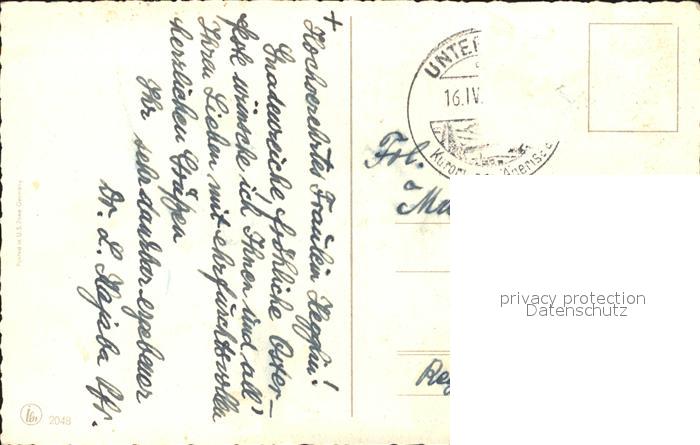 +
Hochverehrtes Fräulein
Gnadenreiche, fröhliche Oster-
wünsche ich Ihnen und all'
Ihren Lieben mit ehrfurchtsvollen
herzlichen Grüßen
Ihr sehr dankbar ergebener
Dr. L.
Printed in U.S. Zone Germany
2048
UNTE
16.IV.
Kurort
Frl.
privacy protection
Datenschutz